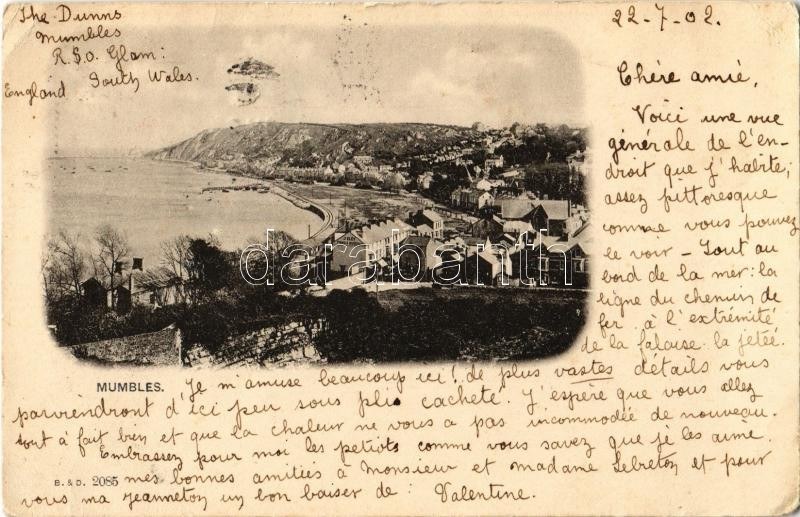 The Dunns
Mumbles
R.S.O. Glam:
South Wales.
England
22-7-02.
Chère amie,
Voici une vue
générale de l'en-
droit que j'habite;
assez pittoresque
comme vous pouvez
le voir - Tout au
bord de la mer: la
ligne du chemin de
fer à l'extrémité
de la falaise: la jetée.
darabanth
MUMBLES.
Je m'amuse beaucoup ici! de plus vastes détails vous
parviendront d'ici peu sous pli cacheté. J'espère que vous allez
tout à fait bien et que la chaleur ne vous a pas incommodée de nouveau.
Embrassez pour moi les petiots comme vous savez que je les aime.
B. & D. 2085
mes bonnes amitiés à Monsieur et madame Lebreton et pour
vous ma Jeanneton un bon baiser de: Valentine.